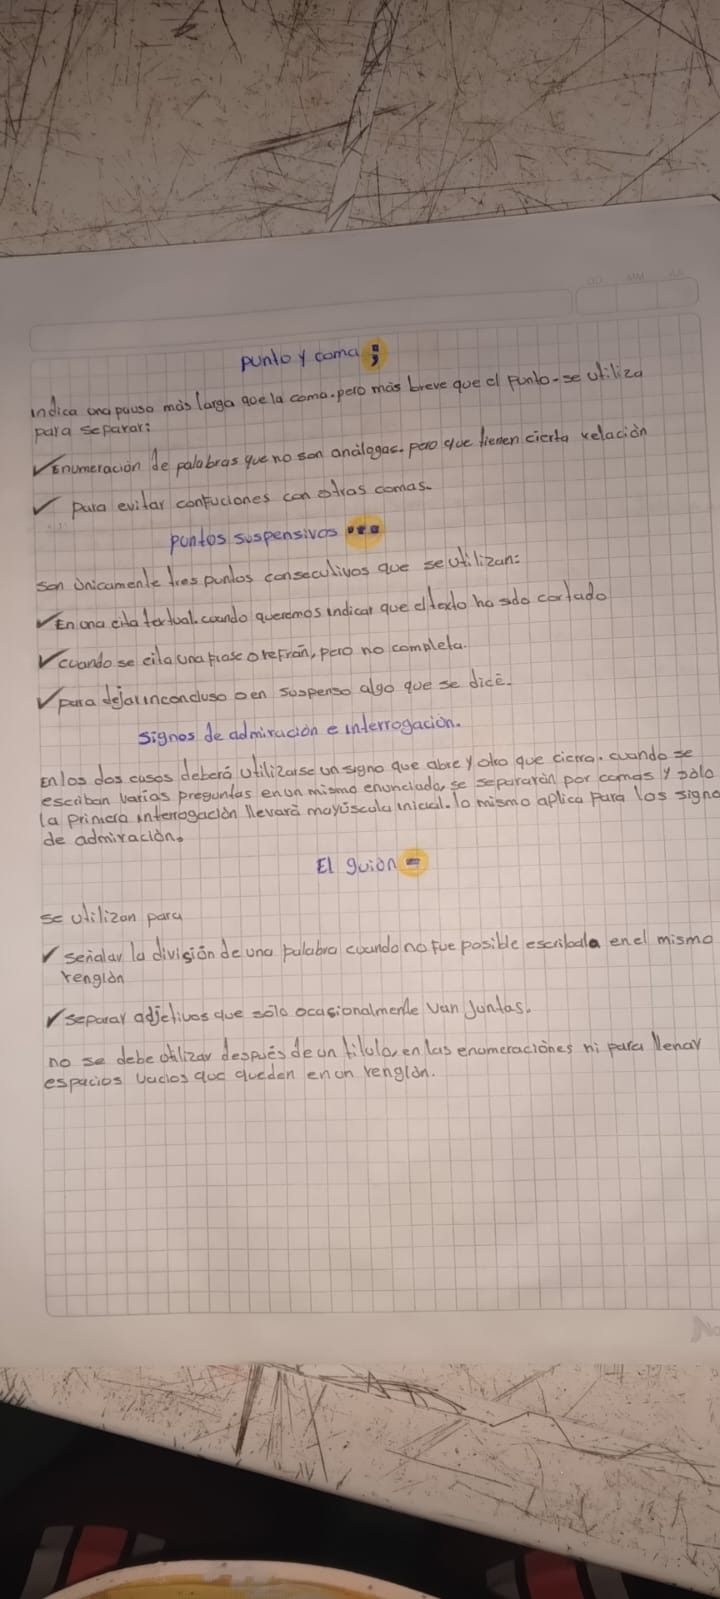 DD MM AA
punto y coma ;
indica una pausa más larga que la coma. pero más breve que el punto - se utiliza
para separar:
✓ Enumeración de palabras que no son análogas. pero que tienen cierta relación
✓ para evitar confuciones con otras comas.
puntos suspensivos ...
son únicamente tres puntos consecutivos que se utilizan:
✓ En una cita textual. cuando queremos indicar que el texto ha sdo cortado
✓ cuando se cita una frase o refrán, pero no completa.
✓ para dejar inconcluso o en suspenso algo que se dice.
signos de admiración e interrogación.
En los dos casos deberá utilizarse un signo que abre y otro que cierra. cuando se
escriban varias preguntas en un mismo enunciado, se separarán por comas y sólo
la primera interrogación llevará mayúscula inicial. lo mismo aplica para los signo
de admiración.
El guión -
se utilizan para
✓ señalar la división de una palabra cuando no fue posible escribirla en el mismo
renglón
✓ separar adjetivos que sólo ocasionalmente van juntas.
no se debe utilizar después de un título, en las enumeraciones ni para llenar
espacios vacios que queden en un renglón.